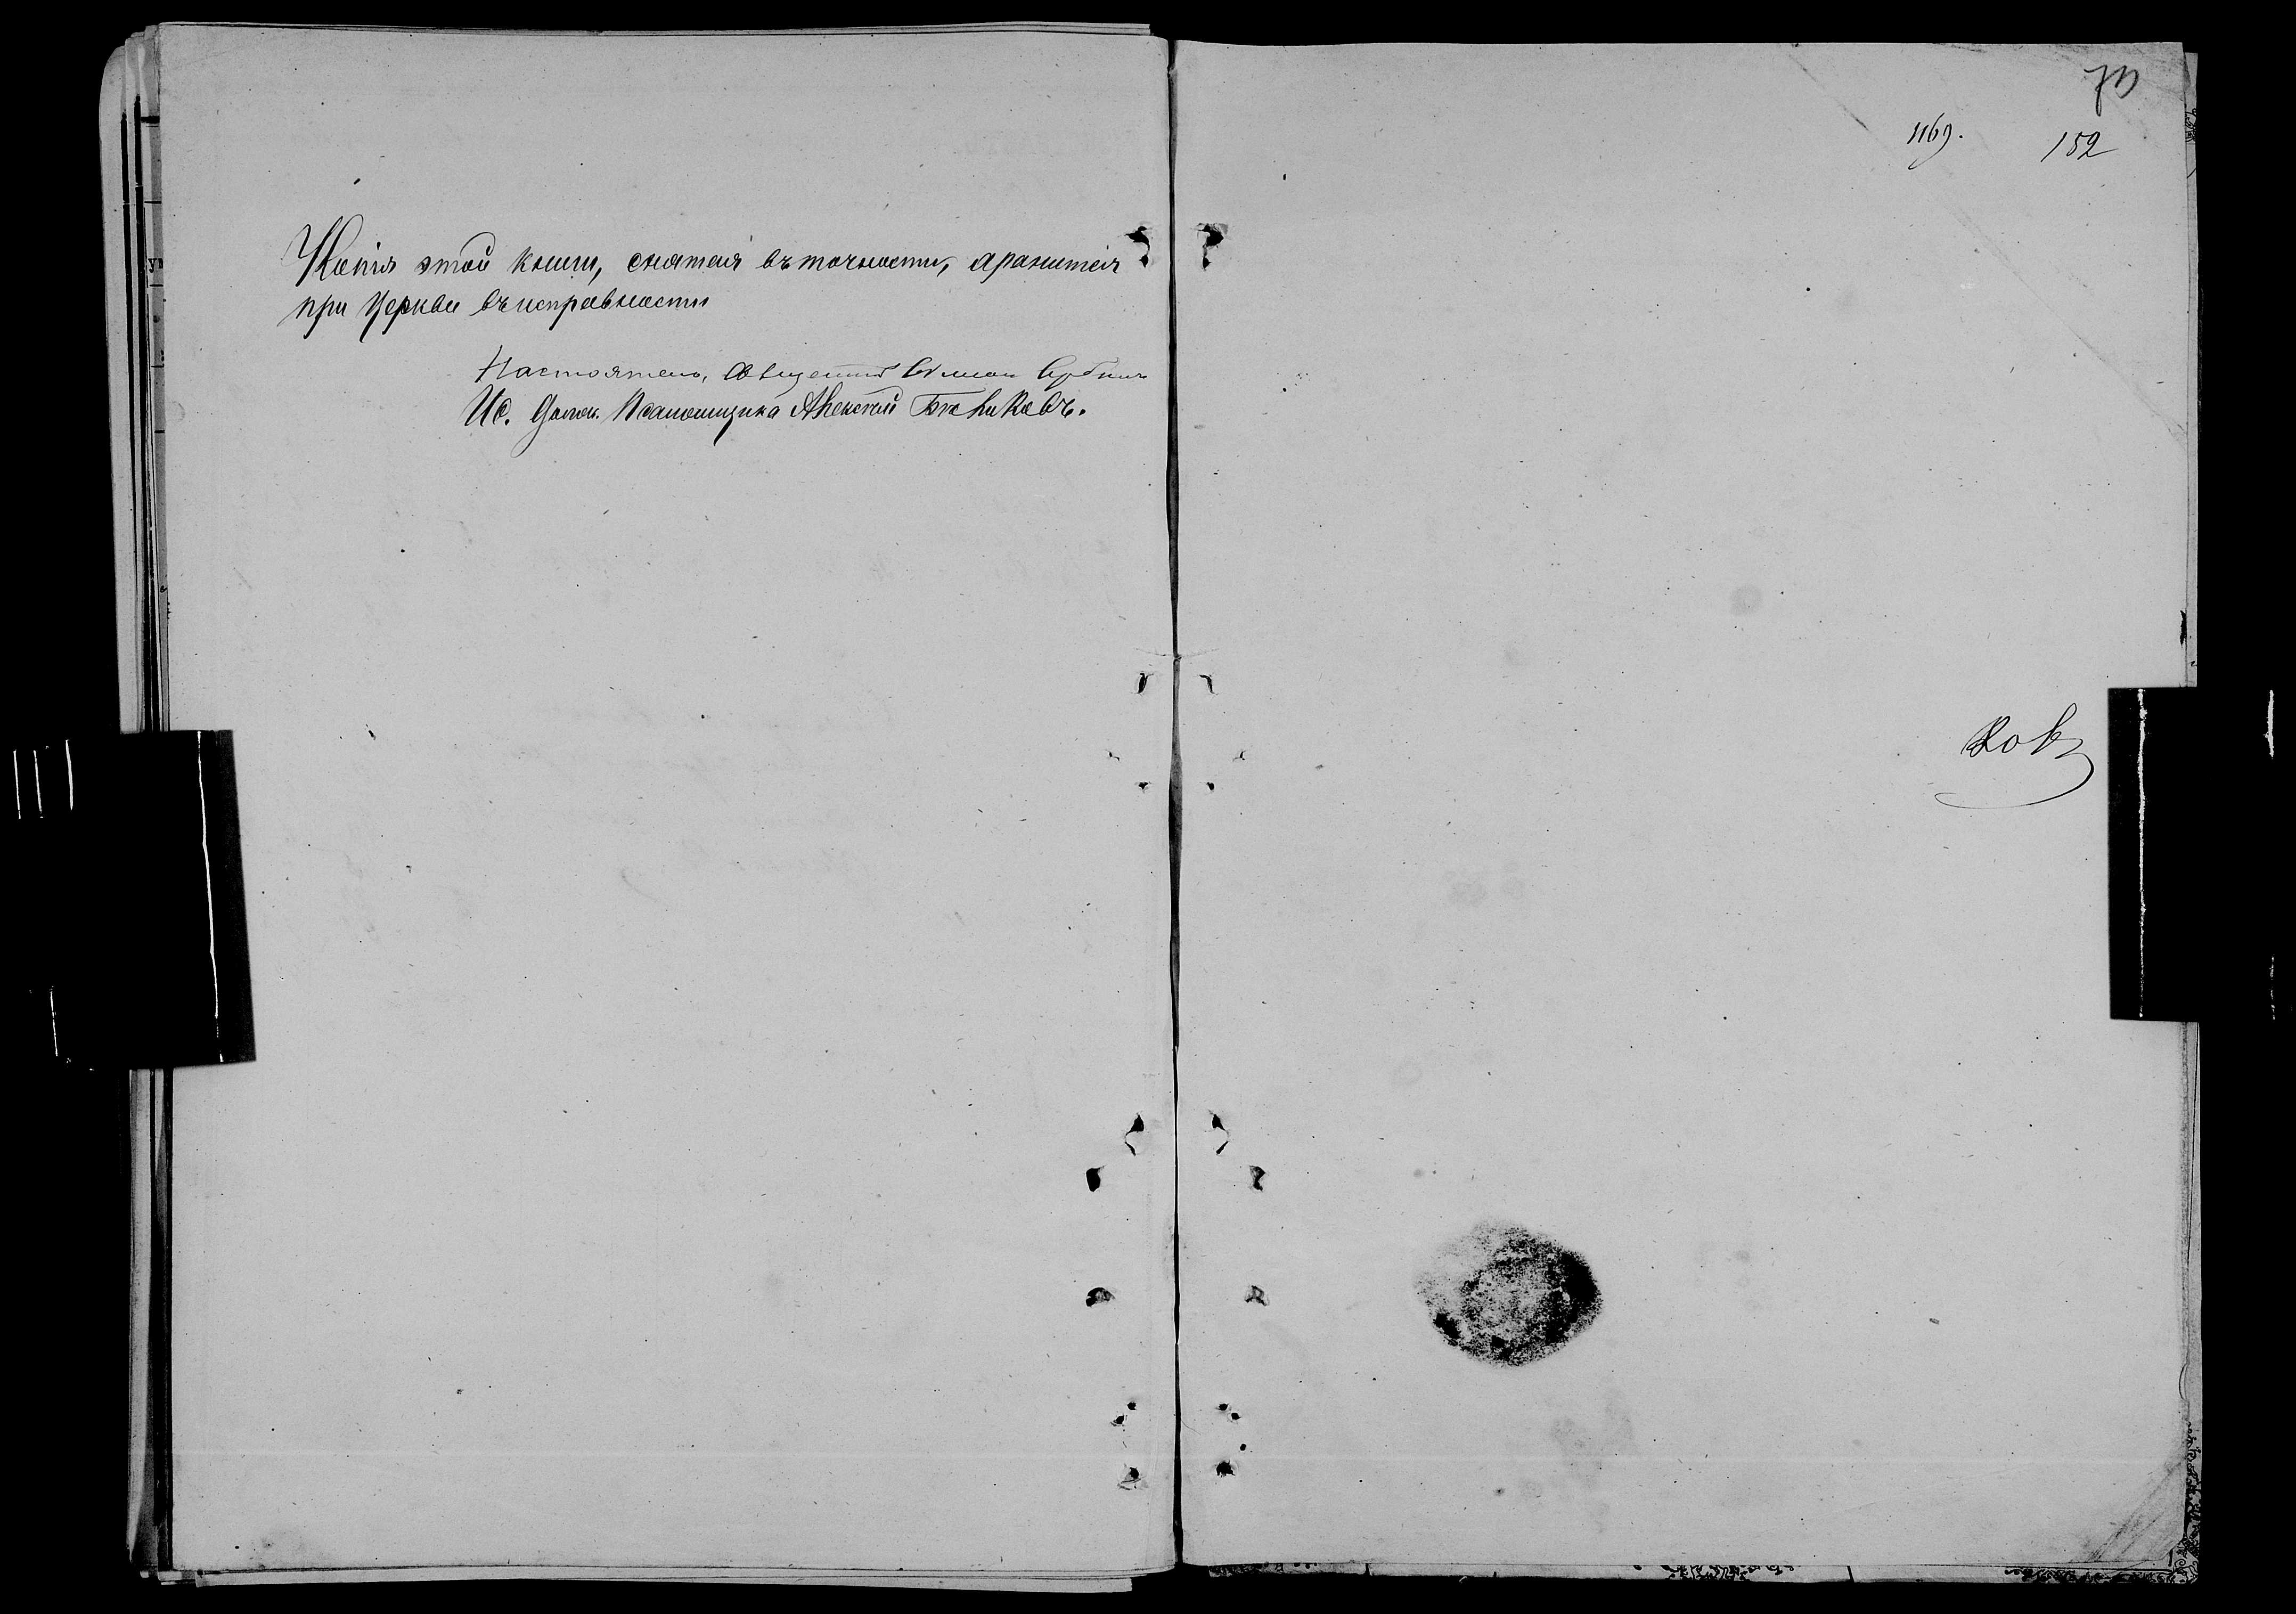 Копія этой книги, снятая въ точности, хранится
при Церкви въ исправности
Настоятель, Священникъ
Ис. долж. Псаломщика Алексей
73
1169.
152
ковъ